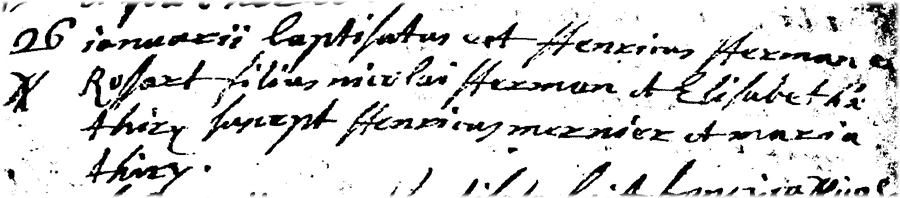 26 ianuarii baptisatus est Henricus Herman ex
Rossart filius nicolai Herman et Elisabethæ
thiry suscept Henricus mernier et maria
thiry.